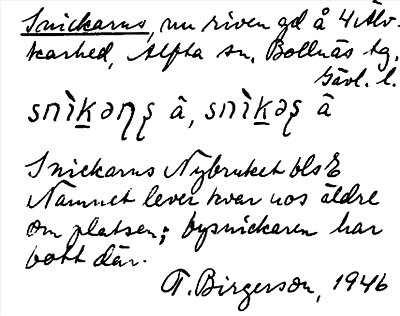 Snickarns, nu riven gd å 4 Älv-
karhed, Alfta sn, Bollnäs tg,
Gävl. l.
â, â
Snickarns Nybruket bls E
Namnet lever kvar hos äldre
om platsen; bysnickaren har
bott där.
T. Birgerson, 1946